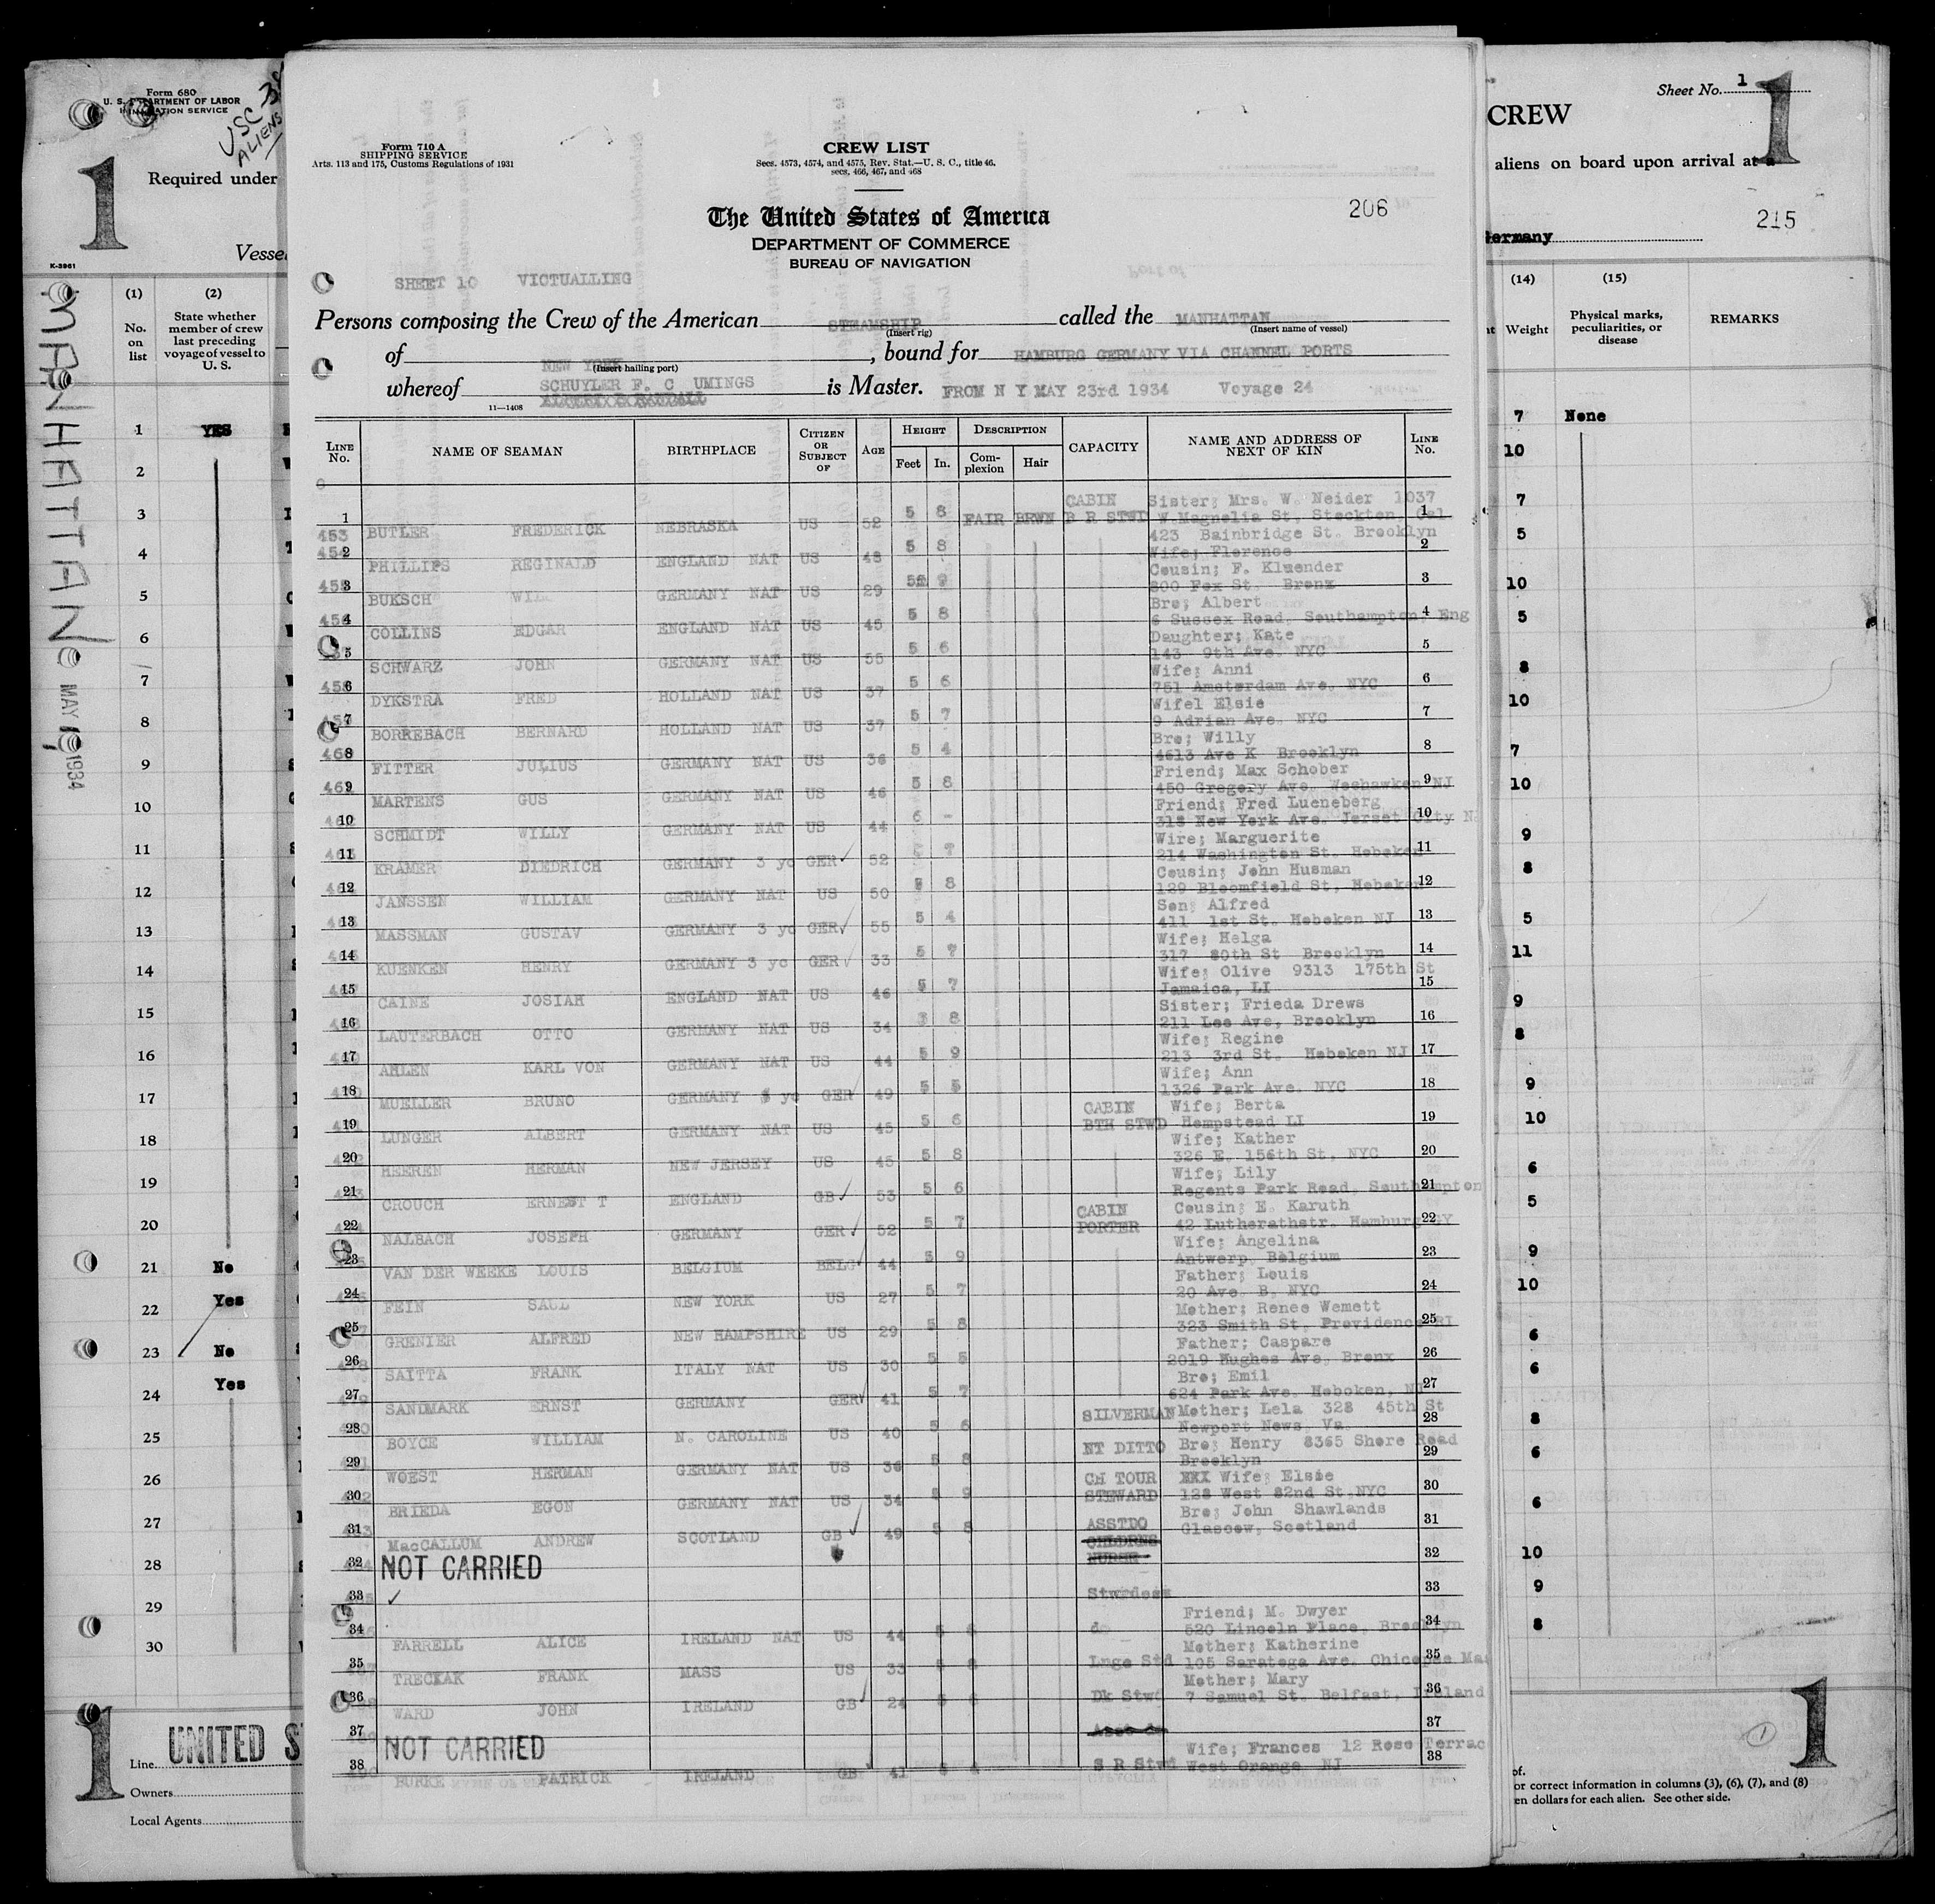 Form 680
U. S. DEPARTMENT OF LABOR
IMMIGRATION SERVICE
USC
ALIENS
1
Required under
Vessel
K-3961
MANHATTAN
MAY 1934
(1) (2)
No. on list
State whether member of crew last preceding voyage of vessel to U. S.
1 YES
2
3
4
5
6
7
8
9
10
11
12
13
14
15
16
17
18
19
20
21 No
22 Yes
23 No
24 Yes
25
26
27
28
29
30
1 UNITED S
Line
Owners
Local Agents
Form 710 A
SHIPPING SERVICE
Arts. 113 and 175, Customs Regulations of 1931
CREW LIST
Secs. 4573, 4574, and 4575, Rev. Stat.—U. S. C., title 46,
secs. 466, 467, and 468
The United States of America
DEPARTMENT OF COMMERCE
BUREAU OF NAVIGATION
206
SHEET 10 VICTUALLING
Persons composing the Crew of the American STEAMSHIP called the MANHATTAN
(Insert rig) (Insert name of vessel)
of NEW YORK, bound for HAMBURG GERMANY VIA CHANNEL PORTS
(Insert hailing port)
whereof SCHUYLER F. C UMINGS is Master. FROM N Y MAY 23rd 1934 Voyage 24
11—1408
LINE No. NAME OF SEAMAN BIRTHPLACE CITIZEN OR SUBJECT OF AGE HEIGHT Feet In. DESCRIPTION Complexion Hair CAPACITY NAME AND ADDRESS OF NEXT OF KIN LINE No.
1 BUTLER FREDERICK NEBRASKA US 52 5 8 FAIR BRWN CABIN B R STWD Sister; Mrs. W. Neider 1037 W.Magnolia St, Stockton, Cal 1
2 PHILLIPS REGINALD ENGLAND NAT US 48 5 8 423 Bainbridge St. Brooklyn Wife; Florence 2
3 BUKSCH GERMANY NAT US 29 Cousin; F. Kluender 800 Fox St. Bronx 3
4 COLLINS EDGAR ENGLAND NAT US 45 5 8 Bro; Albert 6 Sussex Road, Southampton, Eng 4
5 SCHWARZ JOHN GERMANY NAT US 55 5 6 Daughter; Kate 143 9th Ave. NYC 5
6 DYKSTRA FRED HOLLAND NAT US 37 5 6 Wife; Anni 751 Amsterdam Ave. NYC 6
7 BORREBACH BERNARD HOLLAND NAT US 37 5 7 Wifel Elsie 9 Adrian Ave. NYC 7
8 FITTER JULIUS GERMANY NAT US 36 5 4 Bro; Willy 4613 Ave K Brooklyn 8
9 MARTENS GUS GERMANY NAT US 46 5 8 Friend; Max Schober 450 Gregory Ave. Weehawken NJ 9
10 SCHMIDT WILLY GERMANY NAT US 44 6 - Friend; Fred Lueneberg 318 New York Ave. Jerset City N 10
11 KRAMER DIEDRICH GERMANY 3 yo GER 52 7 Wire; Marguerite 214 Washington St. Hoboken 11
12 JANSSEN WILLIAM GERMANY NAT US 50 8 Cousin; John Husman 129 Bloomfield St, Hoboken 12
13 MASSMAN GUSTAV GERMANY 3 yo GER 55 5 4 Son; Alfred 411 1st St. Hoboken NJ 13
14 KUENKEN HENRY GERMANY 3 yo GER 33 5 7 Wife; Helga 317 80th St Brooklyn 14
15 CAINE JOSIAH ENGLAND NAT US 46 5 7 Wife; Olive 9313 175th St Jamaica, LI 15
16 LAUTERBACH OTTO GERMANY NAT US 34 8 Sister; Frieda Drews 211 Lee Ave, Brooklyn 16
17 AHLEN KARL VON GERMANY NAT US 44 5 9 Wife; Regine 213 3rd St. Hoboken NJ 17
18 MUELLER BRUNO GERMANY yo GER 49 5 5 Wife; Ann 1326 Park Ave. NYC 18
19 LUNGER ALBERT GERMANY NAT US 45 5 6 CABIN BTH STWD Wife; Berta Hempstead LI 19
20 HEEREN HERMAN NEW JERSEY US 45 5 8 Wife; Kather 326 E. 156th St. NYC 20
21 CROUCH ERNEST T ENGLAND GB 53 5 6 Wife; Lily Regents Park Road, Southampton 21
22 NALBACH JOSEPH GERMANY GER 52 5 7 CABIN PORTER Cousin; E. Karuth 42 Lutherathstr. Hamburg GY 22
23 VAN DER WEEKE LOUIS BELGIUM BELG 44 5 9 Wife; Angelina Antwerp Belgium 23
24 FEIN SAUL NEW YORK US 27 5 7 Father; Louis 20 Ave. B. NYC 24
25 GRENIER ALFRED NEW HAMPSHIRE US 29 5 8 Mother; Renee Wemett 323 Smith St. Providence RI 25
26 SAITTA FRANK ITALY NAT US 30 5 5 Father; Caspare 2019 Hughes Ave, Bronx 26
27 SANDMARK ERNST GERMANY GER 41 5 7 Bro; Emil 624 Park Ave. Hoboken, N 27
28 BOYCE WILLIAM N. CAROLINE US 40 5 6 SILVERMAN Mother; Lela 328 45th St Newport News, Va. 28
29 WOEST HERMAN GERMANY NAT US 36 5 8 NT DITTO Bro; Henry 8365 Shore Road Brooklyn 29
30 BRIEDA EGON GERMANY NAT US 34 9 CH TOUR STEWARD Wife; Elsie 128 West 82nd St.NYC 30
31 MacCALLUM ANDREW SCOTLAND GB 49 5 8 ASSTDO Bro; John Shawlands Glascow, Scotland 31
32 NOT CARRIED CHLDRNS NURSE 32
33 Stwrdess 33
34 FARRELL ALICE IRELAND NAT US 44 5 do Friend; M. Dwyer 520 Lincoln Place, Brooklyn 34
35 TRECKAK FRANK MASS US 33 8 Lnge Std Mother; Katherine 105 Saratoga Ave. Chicopee Mas 35
36 WARD JOHN IRELAND GB 24 Dk Stwd Mother; Mary 7 Samuel St. Belfast, Ireland 36
37 NOT CARRIED 37
38 BURKE PATRICK IRELAND GB 41 S R Stwd Wife; Frances 12 Rose Terrac West Orange NJ 38
Sheet No. 1
1
CREW
aliens on board upon arrival at a
Germany
215
(14) (15)
Weight
Physical marks, peculiarities, or disease
REMARKS
7 None
10
7
5
10
5
8
10
7
10
9
8
5
11
9
8
9
10
6
5
9
10
6
6
8
6
6
10
9
8
1
of.
or correct information in columns (3), (6), (7), and (8)
en dollars for each alien. See other side.